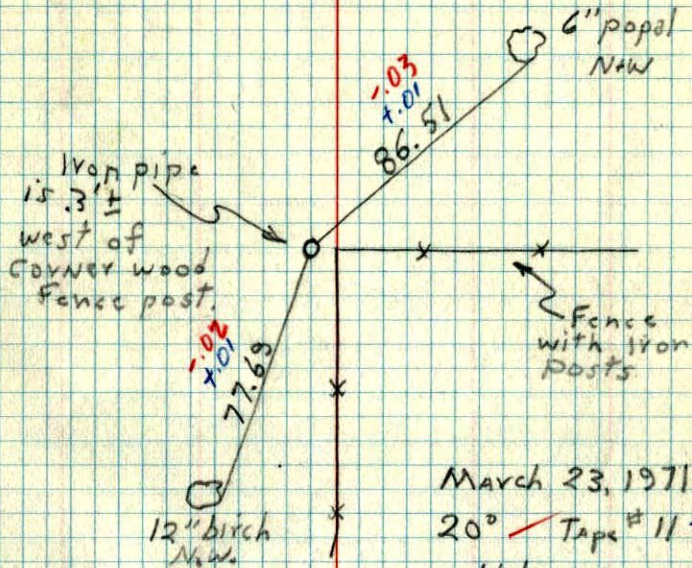 6" popal
N+W
-.03
+.01
86.51
Iron pipe
is .3'±
west of
Corner wood
Fence post.
Fence
with Iron
posts
-.02
+.01
77.69
12" birch
N.W.
March 23, 1971
20° Tape # 11